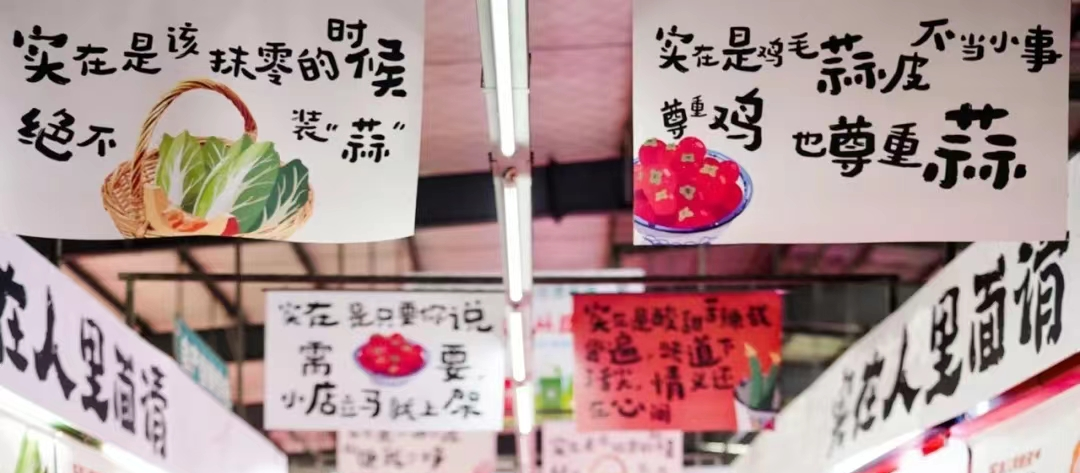 实在是该抹零的时候
绝不装“蒜”
实在是鸡毛蒜皮不当小事
尊重鸡也尊重蒜
实在是只要你说
需要,
小店立马就上架
实在是酸甜
味道下
情义还
在心间
在人里面请
实在人里面请